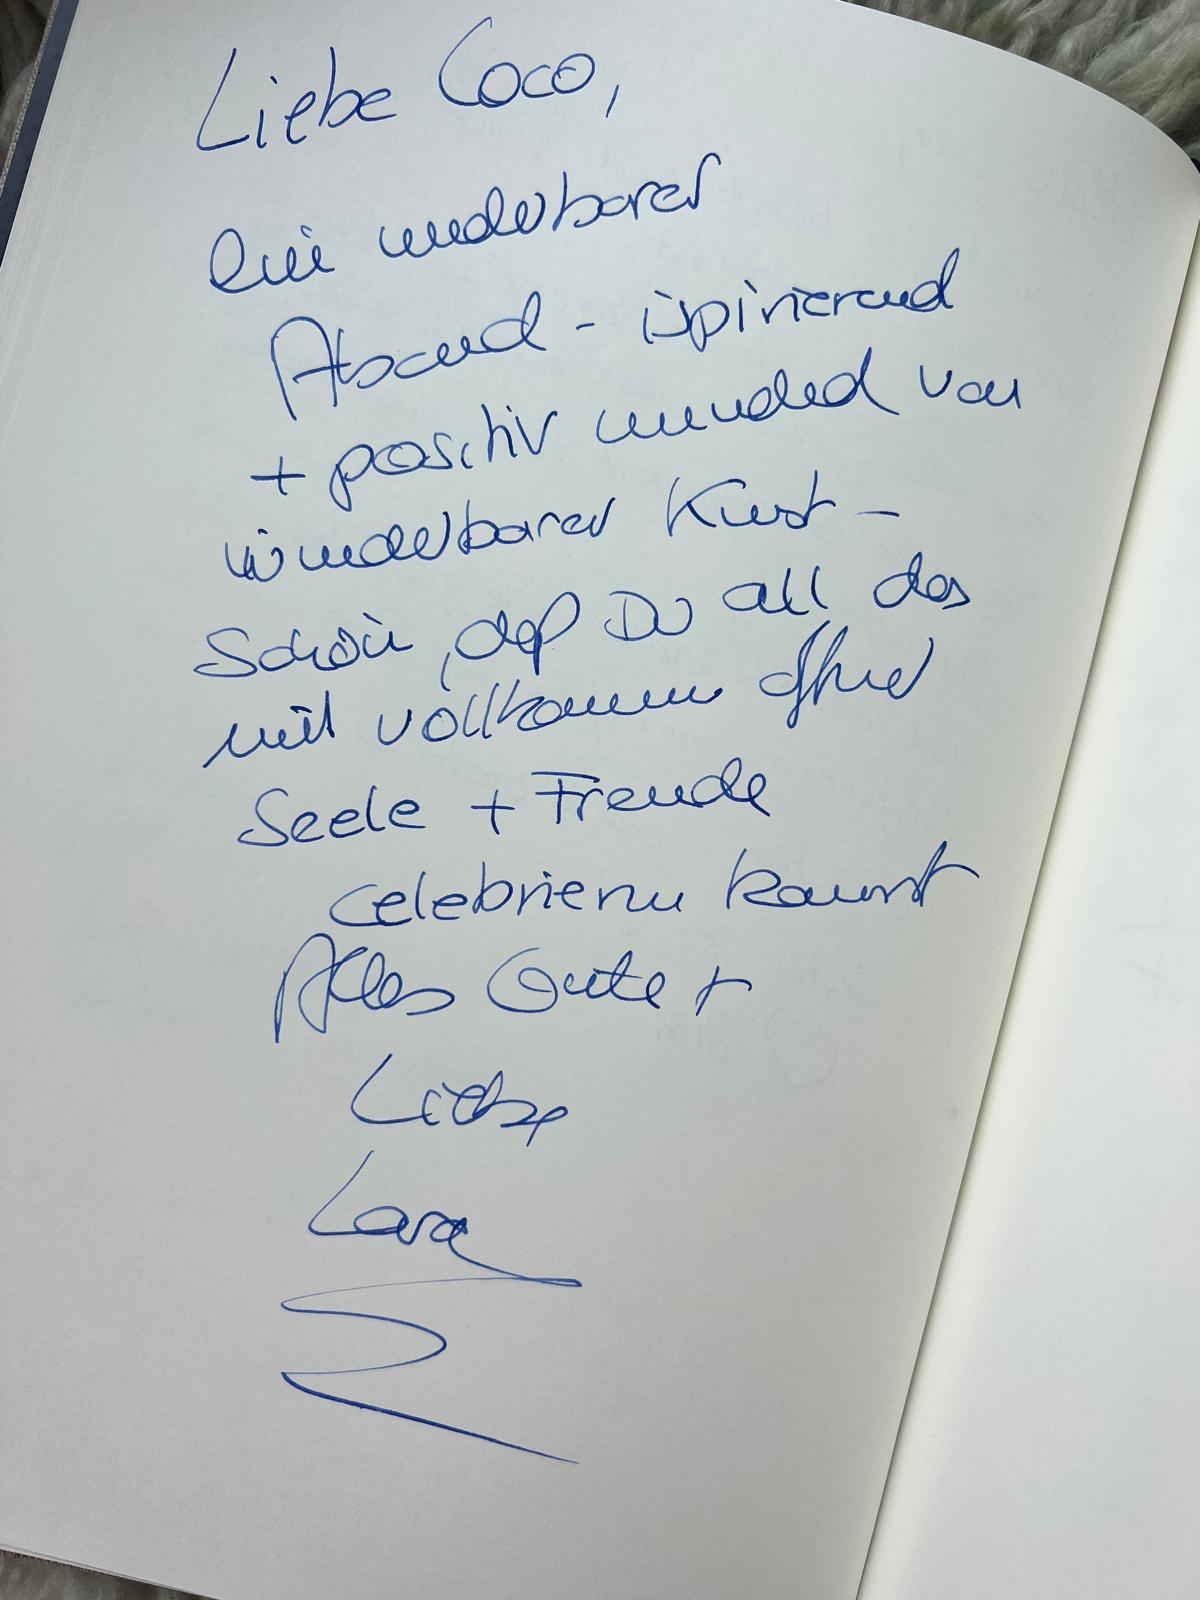 Liebe Coco,
ein wunderbarer
Abend - inspirierend
+ positiv umrundet von
wunderbarer Kunst -
Schön, daß Du all das
mit vollkommen offener
Seele + Freude
celebrieren kannst
Alles Gute +
Liebe
Lara